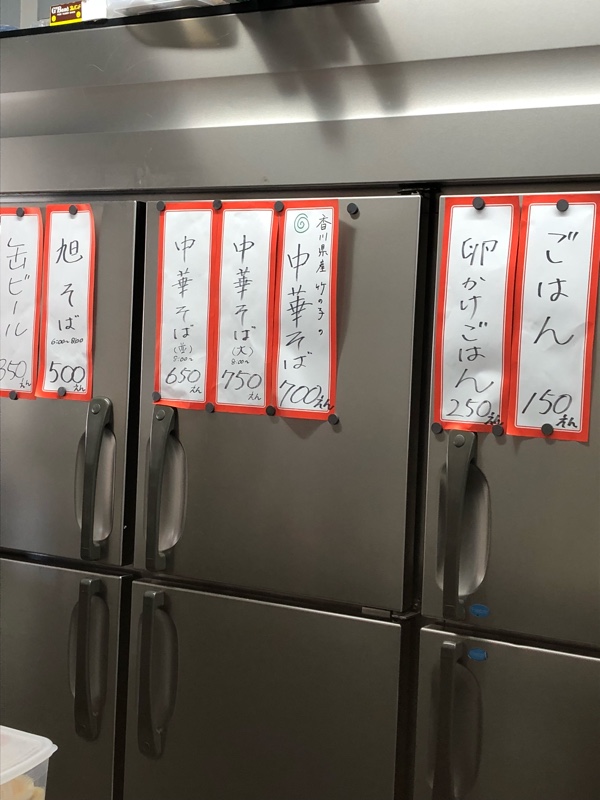 ごはん
150えん
卵かけごはん
250えん
香川県産竹の子の
中華そば
700えん
中華そば
(大)
8:00〜
750えん
中華そば
(並)
8:00〜
650えん
旭そば
6:00〜8:00
500えん
缶ビール
350えん